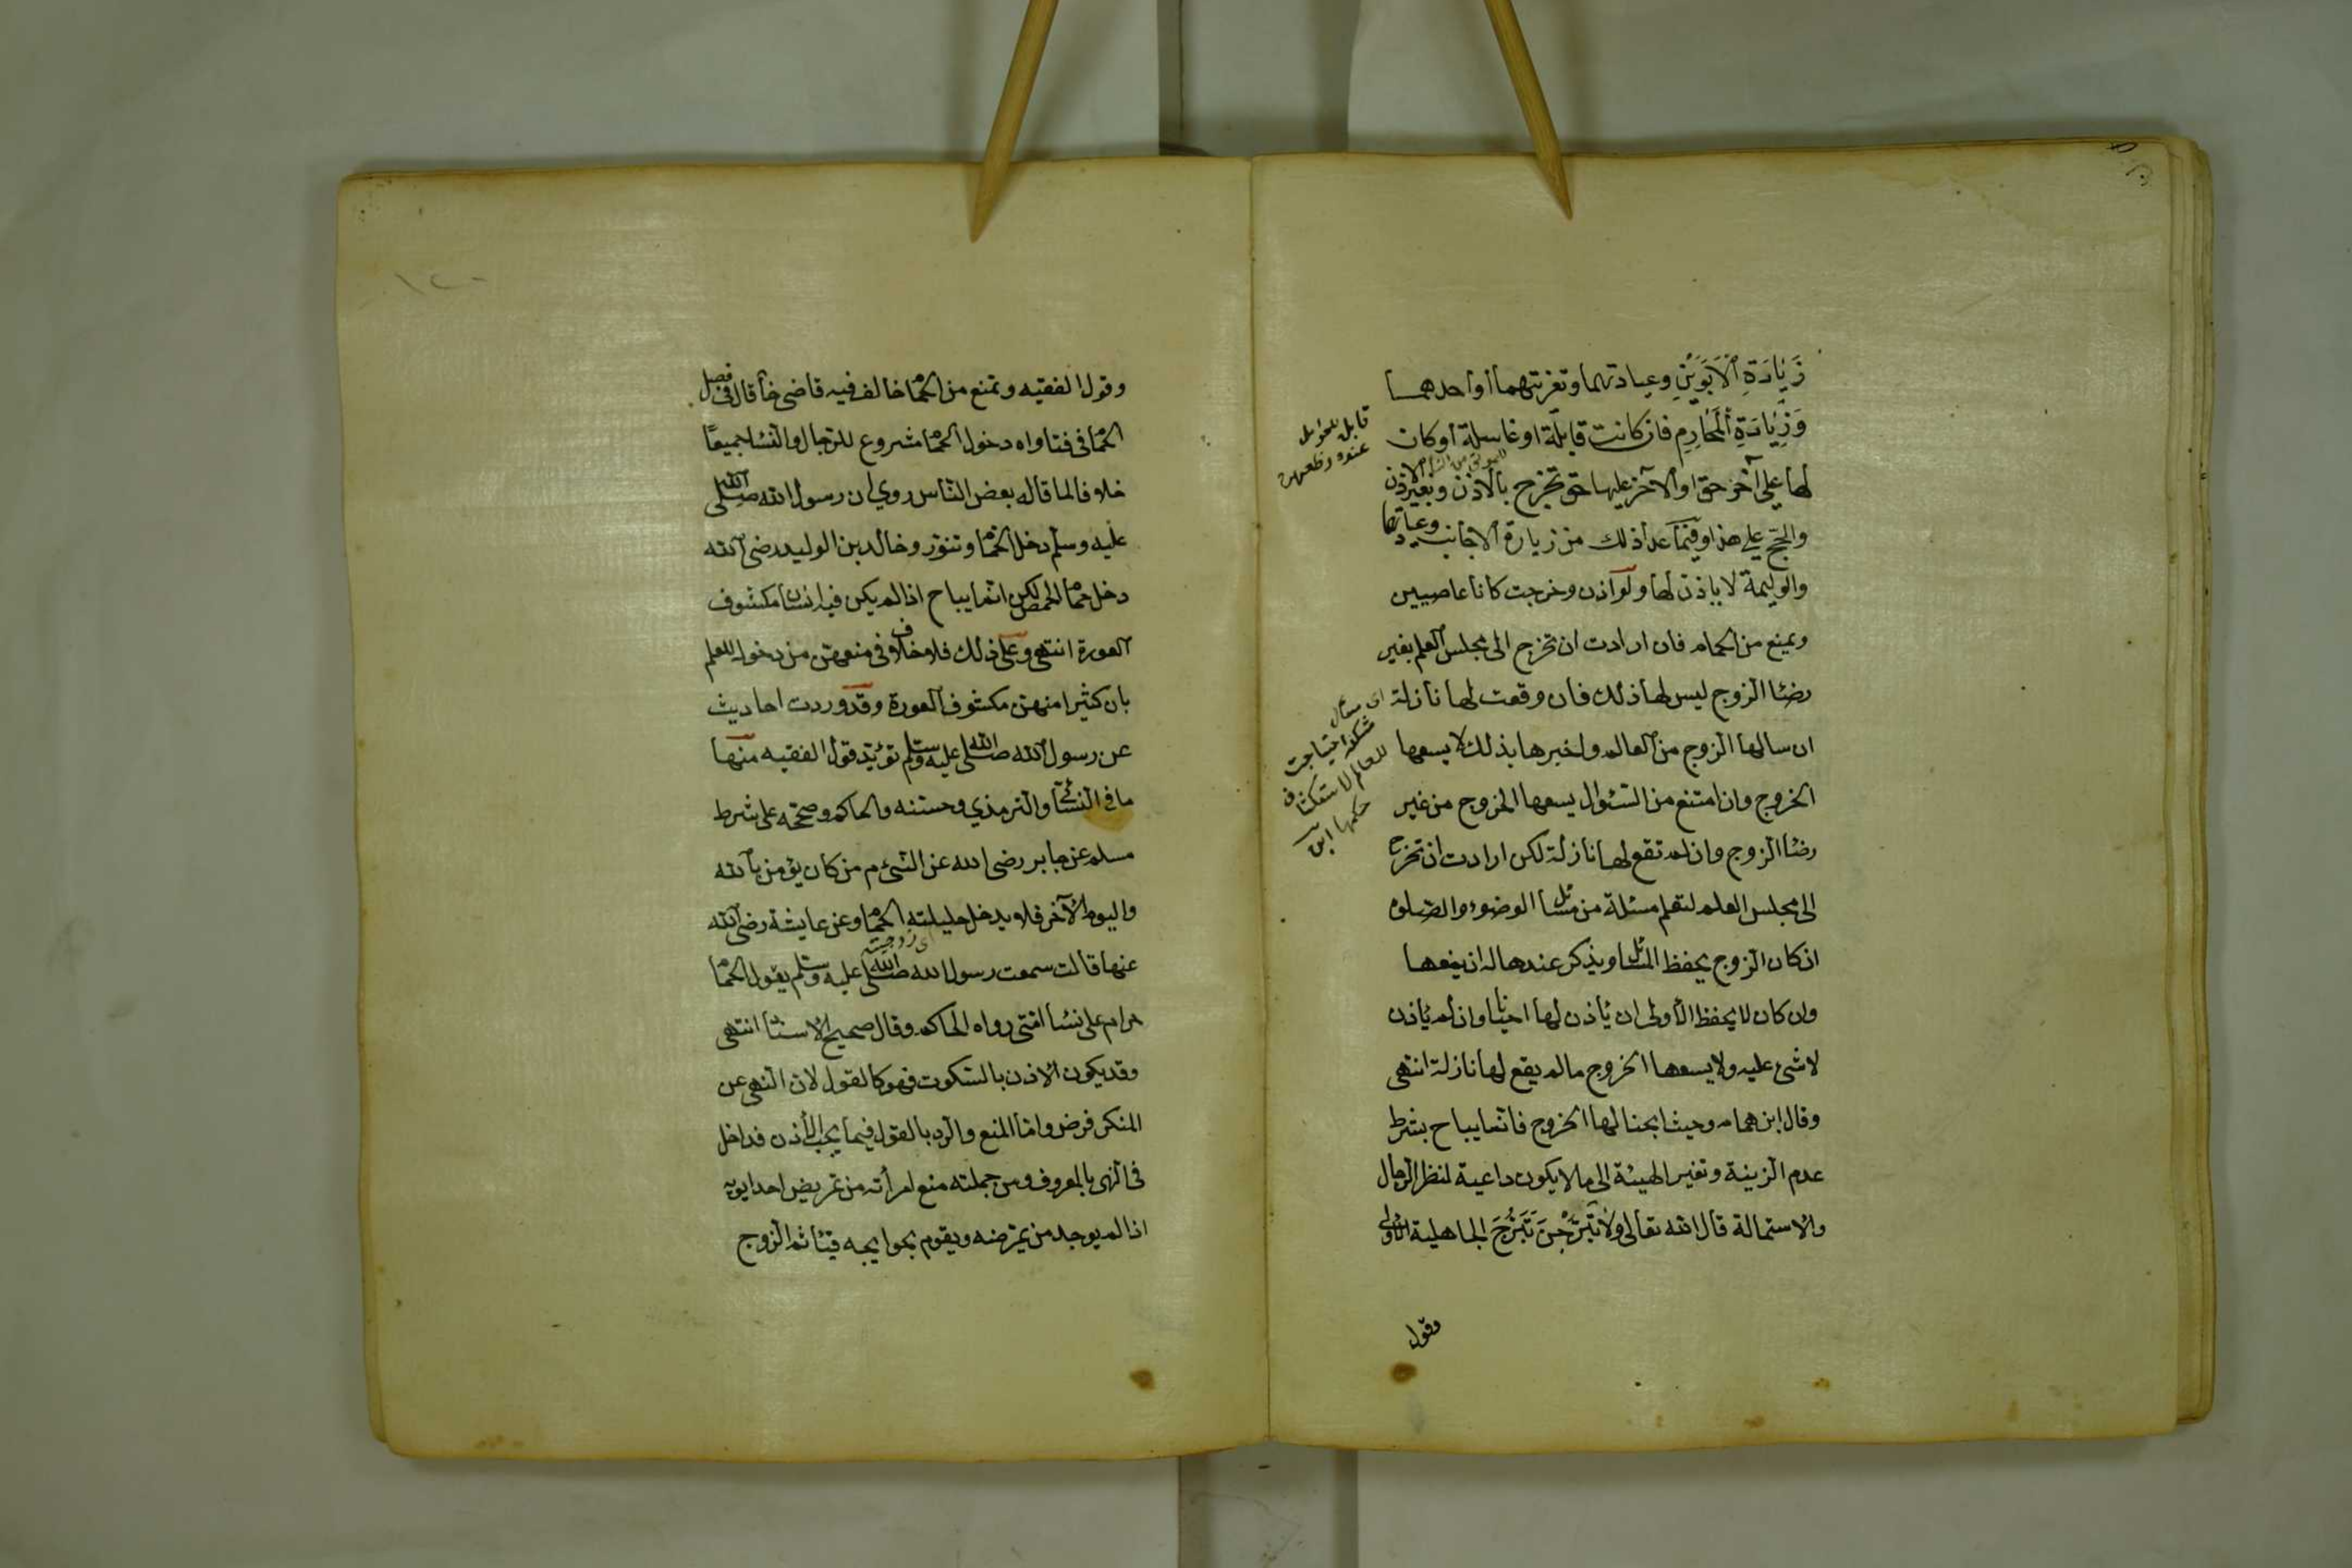 زَيٰادَةِ الْاَبَوَيْنِ وعيادتهما وتعزيتهما أو احدهمـا
وَزِيٰادَةِ الْمَحٰارِمِ فان كانت قابلة او غاسلة أو كان
لها على آخر حق او لآخر عليها حق تخرج بالاذن وبغير الاذن
والحج على هذا وفيما عدا ذلك من زيارة الاجانب وعيادتهم
والوليمة لا ياذن لها ولو اذن وخرجت كانا عاصيين
وتمنع من الحمام فان ارادت ان تخرج الى مجلس العلم بغير
رضا الزوج ليس لها ذلك فان وقعت لها نازلة
ان سالها الزوج من العالم واخبرها بذلك لا يسعها
الخروج وان امتنع من السؤال يسعها الخروج من غير
رضا الزوج وان لم تقع لها نازلة لكن ارادت ان تخرج
الى مجلس العلم لتعلم مسئلة من مسائل الوضوء والصلوة
ان كان الزوج يحفظ المسائل ويذكر عندها له ان يمنعها
وان كان لا يحفظ الأولى ان يأذن لها احيانا وان لم يأذن
لا شئ عليه ولا يسعها الخروج ما لم يقع لها نازلة انتهى
وقال ابن همام وحيث ابحنا لها الخروج فانما يباح بشرط
عدم الزينة وتغير الهيئة الى ما لا يكون داعية لنظر الرجال
والاستمالة قال الله تعالى ولا تَبَرَّجْنَ تَبَرُّجَ الجاهلية الاولى
وقول
اى مسائل
مشكلة احتياجت
للعالم لاستكشاف
حكمها
وقول الفقيه وتمنع من الحمّا خالف فيه قاضى خان قال فى فصل
الحمّا فى فتاواه دخول الحمّا مشروع للرجال والنسا جميعًا
خلافا لما قاله بعض الناس روي ان رسول الله صلى الله
عليه وسلم دخل الحمّا وتنور وخالد بن الوليد رضى الله
دخل حمّا الحمص لكن انما يباح اذا لم يكن فيه انسان مكشوف
العورة انتهى وعلى ذلك فلا خلاف فى منعهن من دخول للعلم
بان كثيرا منهن مكشوف العورة وقد وردت احاديث
عن رسول الله صلى الله عليه وسلم تؤيد قول الفقيه منها
ما فى النسائى والترمذي وحسنه والحاكم وصححه على شرط
مسلم عن جابر رضى الله عن النبى م من كان يؤمن بالله
واليوم الآخر فلا يدخل حليلته الحمّا وعن عايشة رضى الله
اى زوجته
عنها قالت سمعت رسول الله صلى الله عليه وسلم يقول الحمّا
حرام على نسا امتى رواه الحاكم وقال صحيح الاسناد انتهى
وقد يكون الاذن بالسكوت فهو كالقول لان النهى عن
المنكر فرض واما المنع والرد بالقول فيما يجب الأذن فداخل
فى النهى بالمعروف ومن جملته منع امرأته من تمريض احد ابويه
اذا لم يوجد من يمرضه ويقوم بحوايجه فيتأثم الزوج